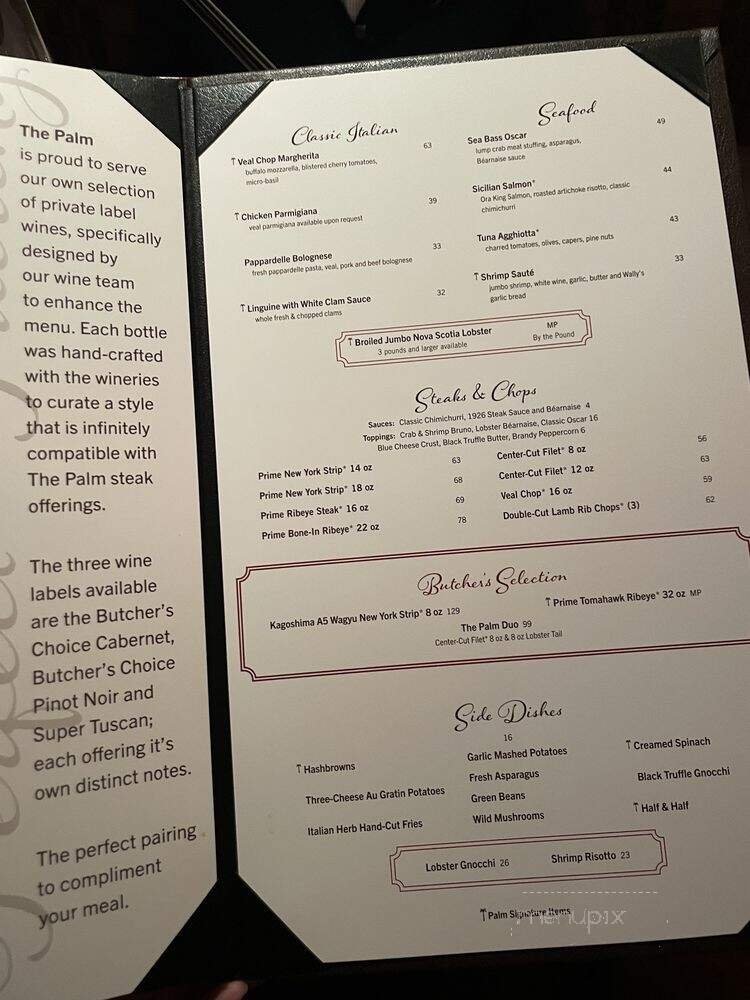 The Palm
is proud to serve
our own selection
of private label
wines, specifically
designed by
our wine team
to enhance the
menu. Each bottle
was hand-crafted
with the wineries
to curate a style
that is infinitely
compatible with
The Palm steak
offerings.
The three wine
labels available
are the Butcher's
Choice Cabernet,
Butcher's Choice
Pinot Noir and
Super Tuscan;
each offering it's
own distinct notes.
The perfect pairing
to compliment
your meal.
Classic Italian
Veal Chop Margherita 63
buffalo mozzarella, blistered cherry tomatoes,
micro-basil
Chicken Parmigiana 39
veal parmigiana available upon request
Pappardelle Bolognese 33
fresh pappardelle pasta, veal, pork and beef bolognese
Linguine with White Clam Sauce 32
whole fresh & chopped clams
Seafood
Sea Bass Oscar 49
lump crab meat stuffing, asparagus,
Béarnaise sauce
Sicilian Salmon* 44
Ora King Salmon, roasted artichoke risotto, classic
chimichurri
Tuna Agghiotta* 43
charred tomatoes, olives, capers, pine nuts
Shrimp Sauté 33
jumbo shrimp, white wine, garlic, butter and Wally's
garlic bread
Broiled Jumbo Nova Scotia Lobster MP
3 pounds and larger available By the Pound
Steaks & Chops
Sauces: Classic Chimichurri, 1926 Steak Sauce and Béarnaise 4
Toppings: Crab & Shrimp Bruno, Lobster Béarnaise, Classic Oscar 16
Blue Cheese Crust, Black Truffle Butter, Brandy Peppercorn 6
Prime New York Strip* 14 oz 63
Prime New York Strip* 18 oz 68
Prime Ribeye Steak* 16 oz 69
Prime Bone-In Ribeye* 22 oz 78
Center-Cut Filet* 8 oz 56
Center-Cut Filet* 12 oz 63
Veal Chop* 16 oz 59
Double-Cut Lamb Rib Chops* (3) 62
Butcher's Selection
Kagoshima A5 Wagyu New York Strip* 8 oz 129
Prime Tomahawk Ribeye* 32 oz MP
The Palm Duo 99
Center-Cut Filet* 8 oz & 8 oz Lobster Tail
Side Dishes
16
Hashbrowns
Three-Cheese Au Gratin Potatoes
Italian Herb Hand-Cut Fries
Garlic Mashed Potatoes
Fresh Asparagus
Green Beans
Wild Mushrooms
Creamed Spinach
Black Truffle Gnocchi
Half & Half
Lobster Gnocchi 26
Shrimp Risotto 23
Palm Signature Items
menupix